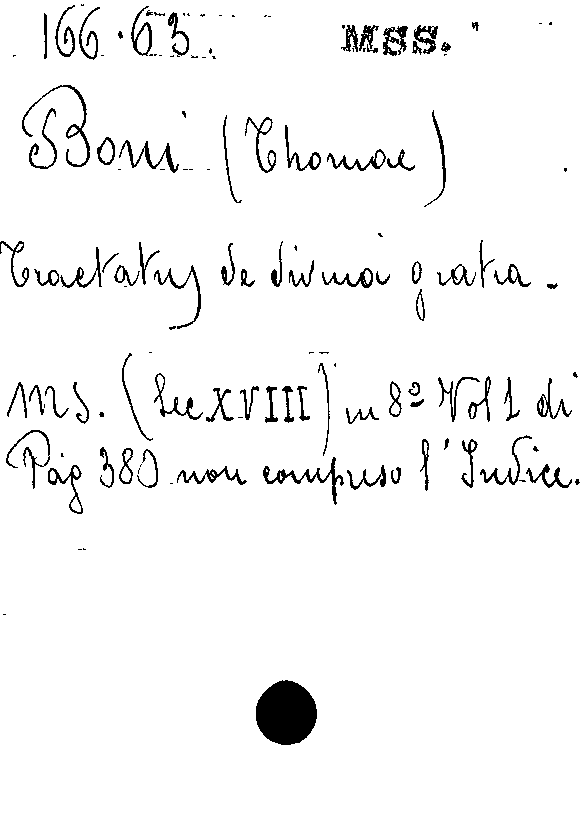 166.63. MSS.
Boni (Thomae)
Tractatus de divina gratia.
MS. (Sec XVIII) in 8º Vol 1 di
Pag 380 non compreso l'Indice.